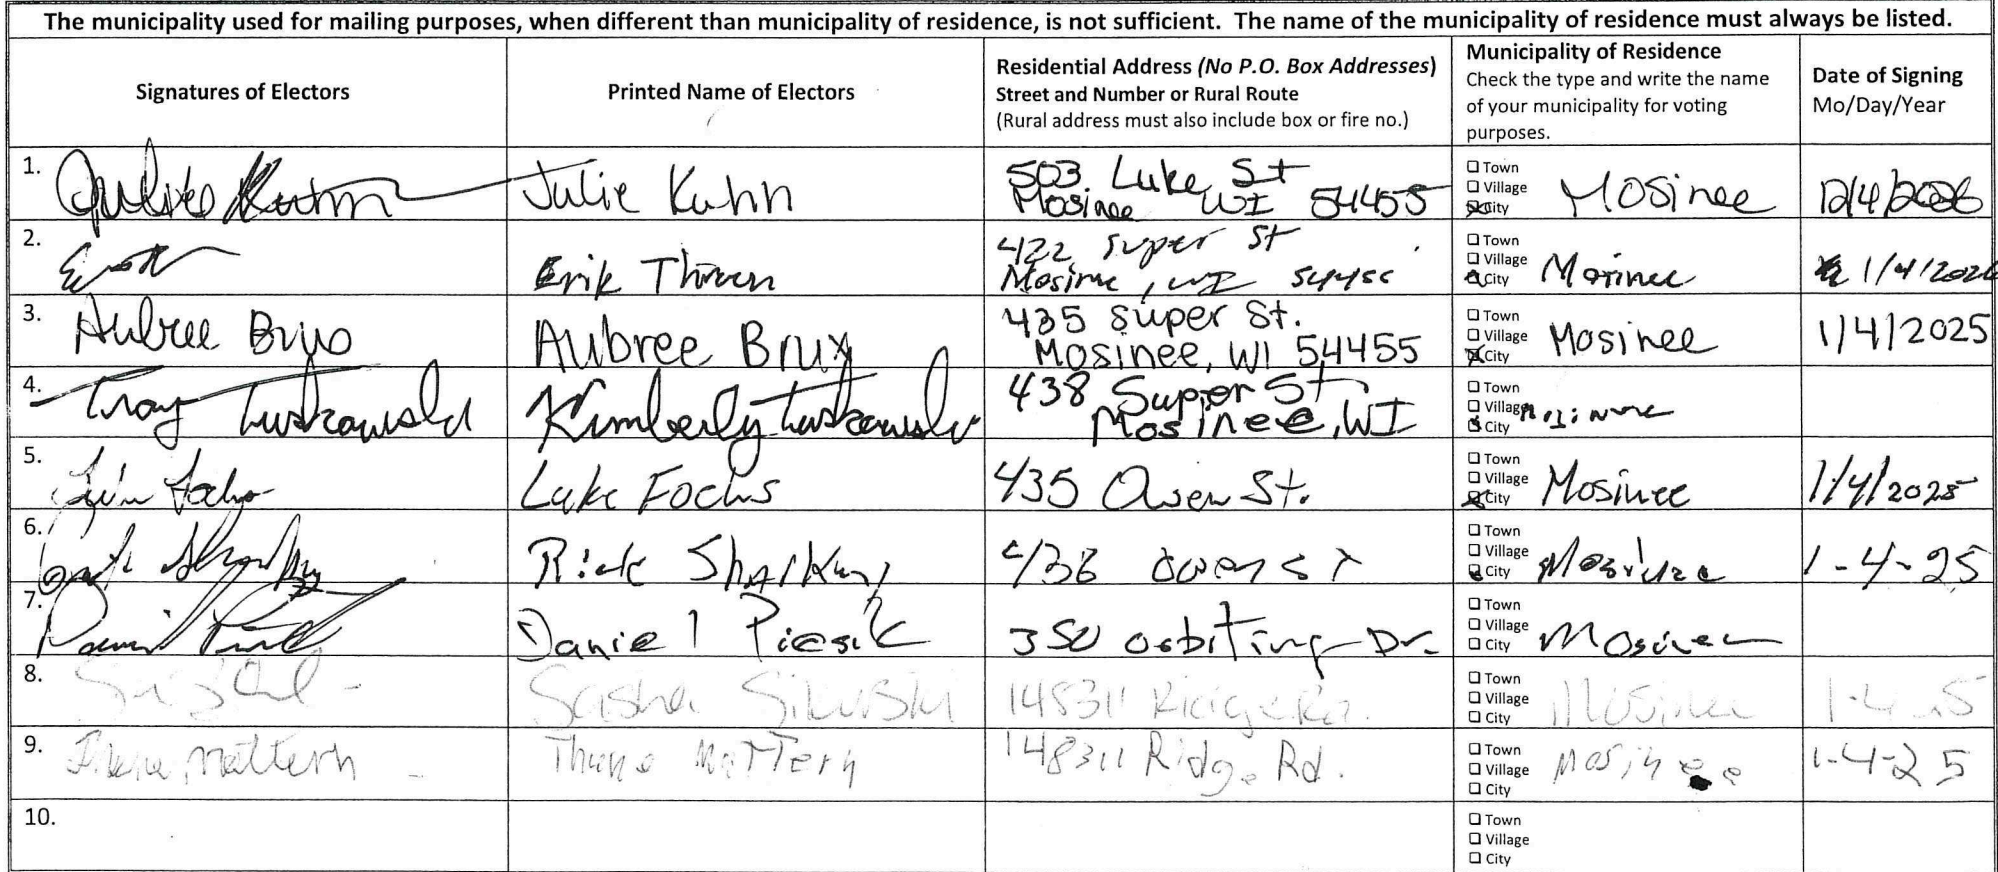 The municipality used for mailing purposes, when different than municipality of residence, is not sufficient. The name of the municipality of residence must always be listed.
Signatures of Electors
Printed Name of Electors
Residential Address (No P.O. Box Addresses)
Street and Number or Rural Route
(Rural address must also include box or fire no.)
Municipality of Residence
Check the type and write the name
of your municipality for voting
purposes.
Date of Signing
Mo/Day/Year
1.
Julie Kuhn
503 Luke St
Mosinee WI 54455
Town
Village
City
Mosinee
2.
Erik
422 Super St
Mosinee, WI 54455
Town
Village
City
Mosinee
1/4/2026
3.
Aubree Brux
Aubree Brux
435 Super St.
Mosinee, WI 54455
Town
Village
City
Mosinee
1/4/2025
4.
Kimberly
438 Super St
Mosinee, WI
Town
Village
City
Mosinee
5.
Luke Fochs
435 Owen St.
Town
Village
City
Mosinee
1/4/2025
6.
Rick
Town
Village
City
Mosinee
1-4-25
7.
Daniel
350 Orbiting Dr.
Town
Village
City
Mosinee
8.
Sasha
148311 Ridge Rd.
Town
Village
City
Mosinee
9.
Mattern
Mattern
148311 Ridge Rd.
Town
Village
City
Mosinee
1-4-25
10.
Town
Village
City